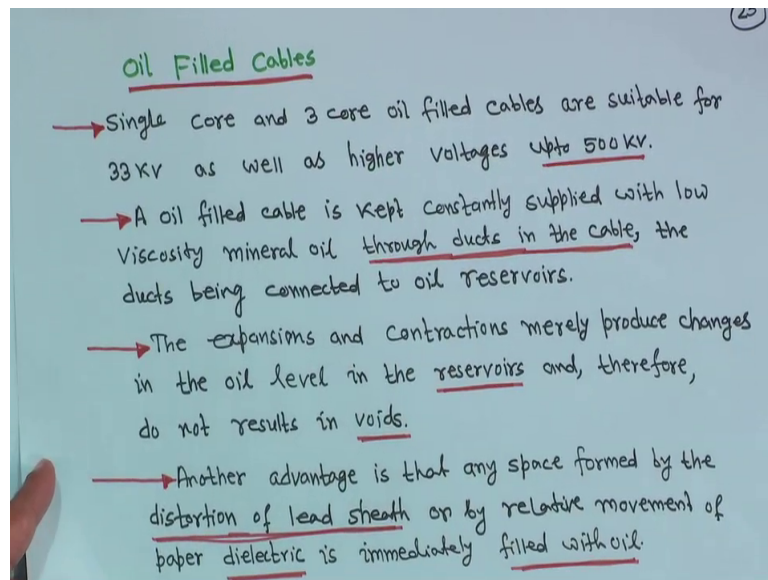 23
Oil Filled Cables
→ Single core and 3 core oil filled cables are suitable for
33 KV as well as higher voltages upto 500 KV.
→ A oil filled cable is kept constantly supplied with low
viscosity mineral oil through ducts in the cable, the
ducts being connected to oil reservoirs.
→ The expansions and contractions merely produce changes
in the oil level in the reservoirs and, therefore,
do not results in voids.
→ Another advantage is that any space formed by the
distortion of lead sheath or by relative movement of
paper dielectric is immediately filled with oil.